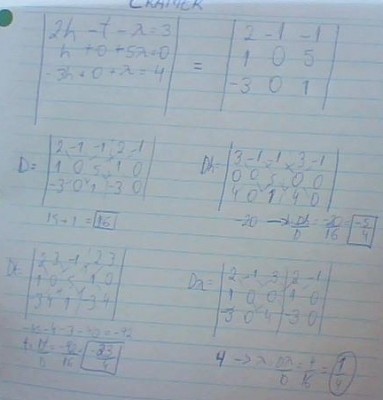 CRAMER
2h - t - x = 3
h + 0 + 5x = 0
-3h + 0 + x = 4
=
2 -1 -1
1 0 5
-3 0 1
D =
2 -1 -1 2 -1
1 0 5 1 0
-3 0 1 -3 0
15 + 1 = 16
Dh
3 -1 -1 3 -1
0 0 5 0 0
4 0 1 4 0
-20 → h Dh/D = -20/16 = -5/4
Dt
2 3 -1 2 3
1 0 5 1 0
-3 4 1 -3 4
t = Dt/D
Dx =
2 -1 3 2 -1
1 0 0 1 0
-3 0 4 -3 0
4 → x = Dx/D = 4/16 = 1/4